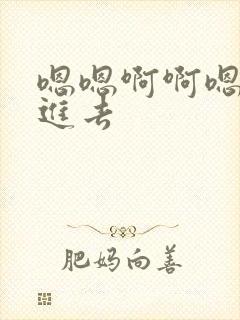 嗯嗯啊啊嗯
进去
肥妈向善